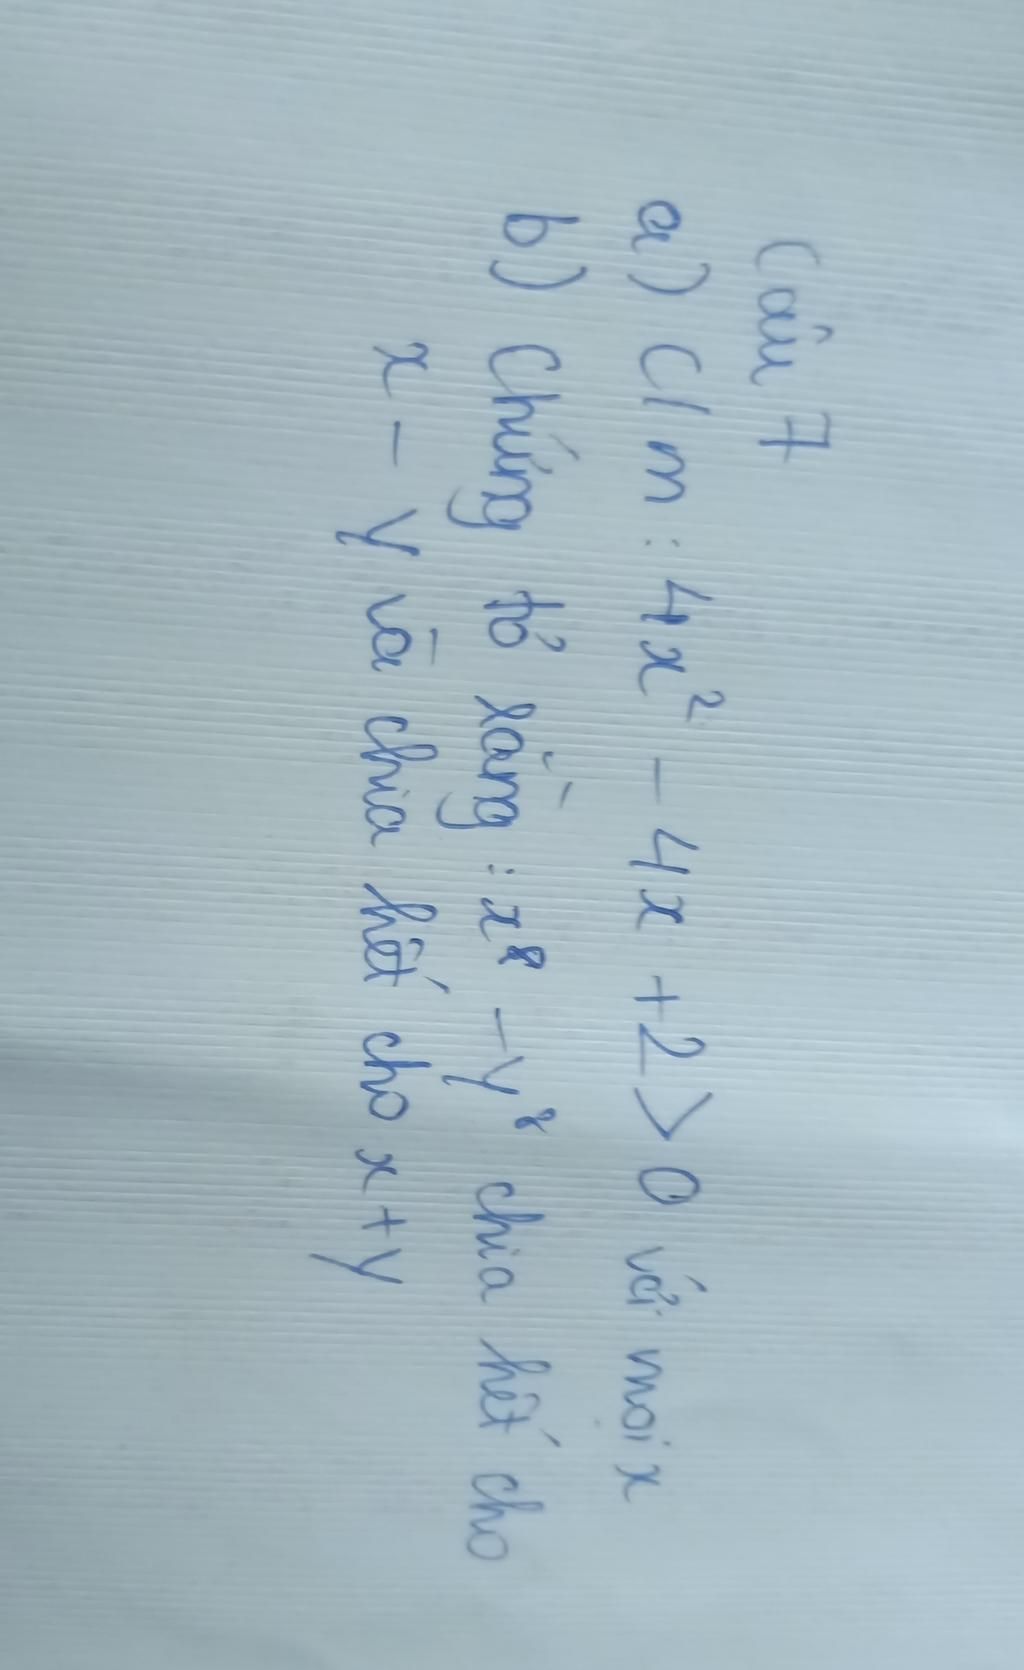 Câu 7
a) C/m : 4x² - 4x + 2 > 0 với mọi x
b) Chứng tỏ rằng : x⁸ - y⁸ chia hết cho
x - y và chia hết cho x + y